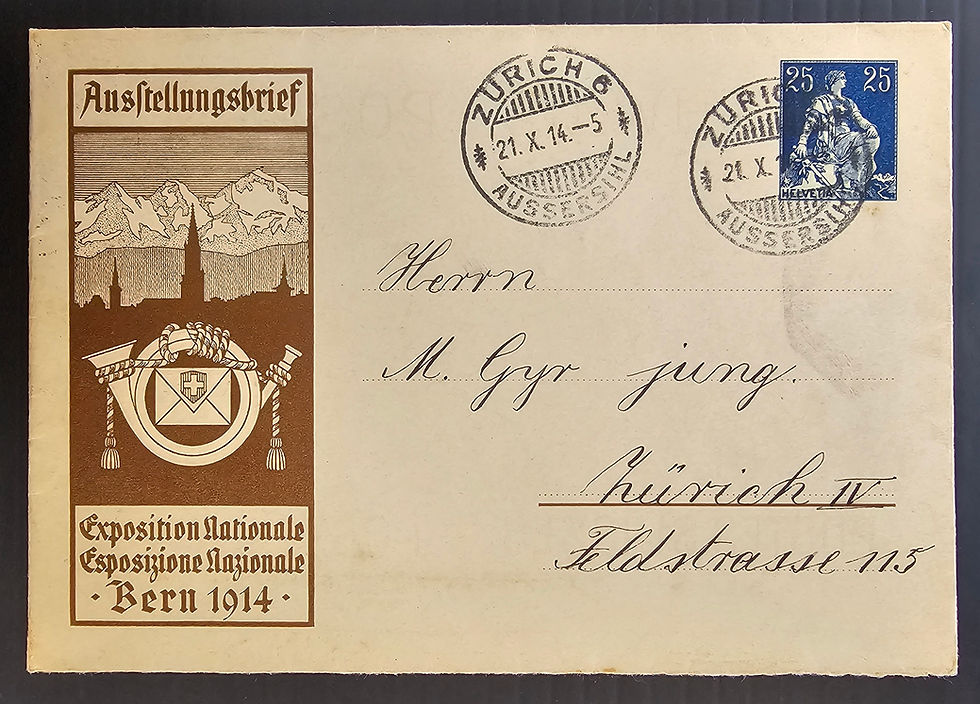 Ausstellungsbrief
Exposition Nationale
Esposizione Nazionale
· Bern 1914 ·
ZÜRICH 6
21. X. 14.–5
AUSSERSIHL
ZÜRIC
21. X. 1
AUSSERSIH
25 25
HELVETIA
Herrn
M. Gyr jung.
Zürich IV
Feldstrasse 115